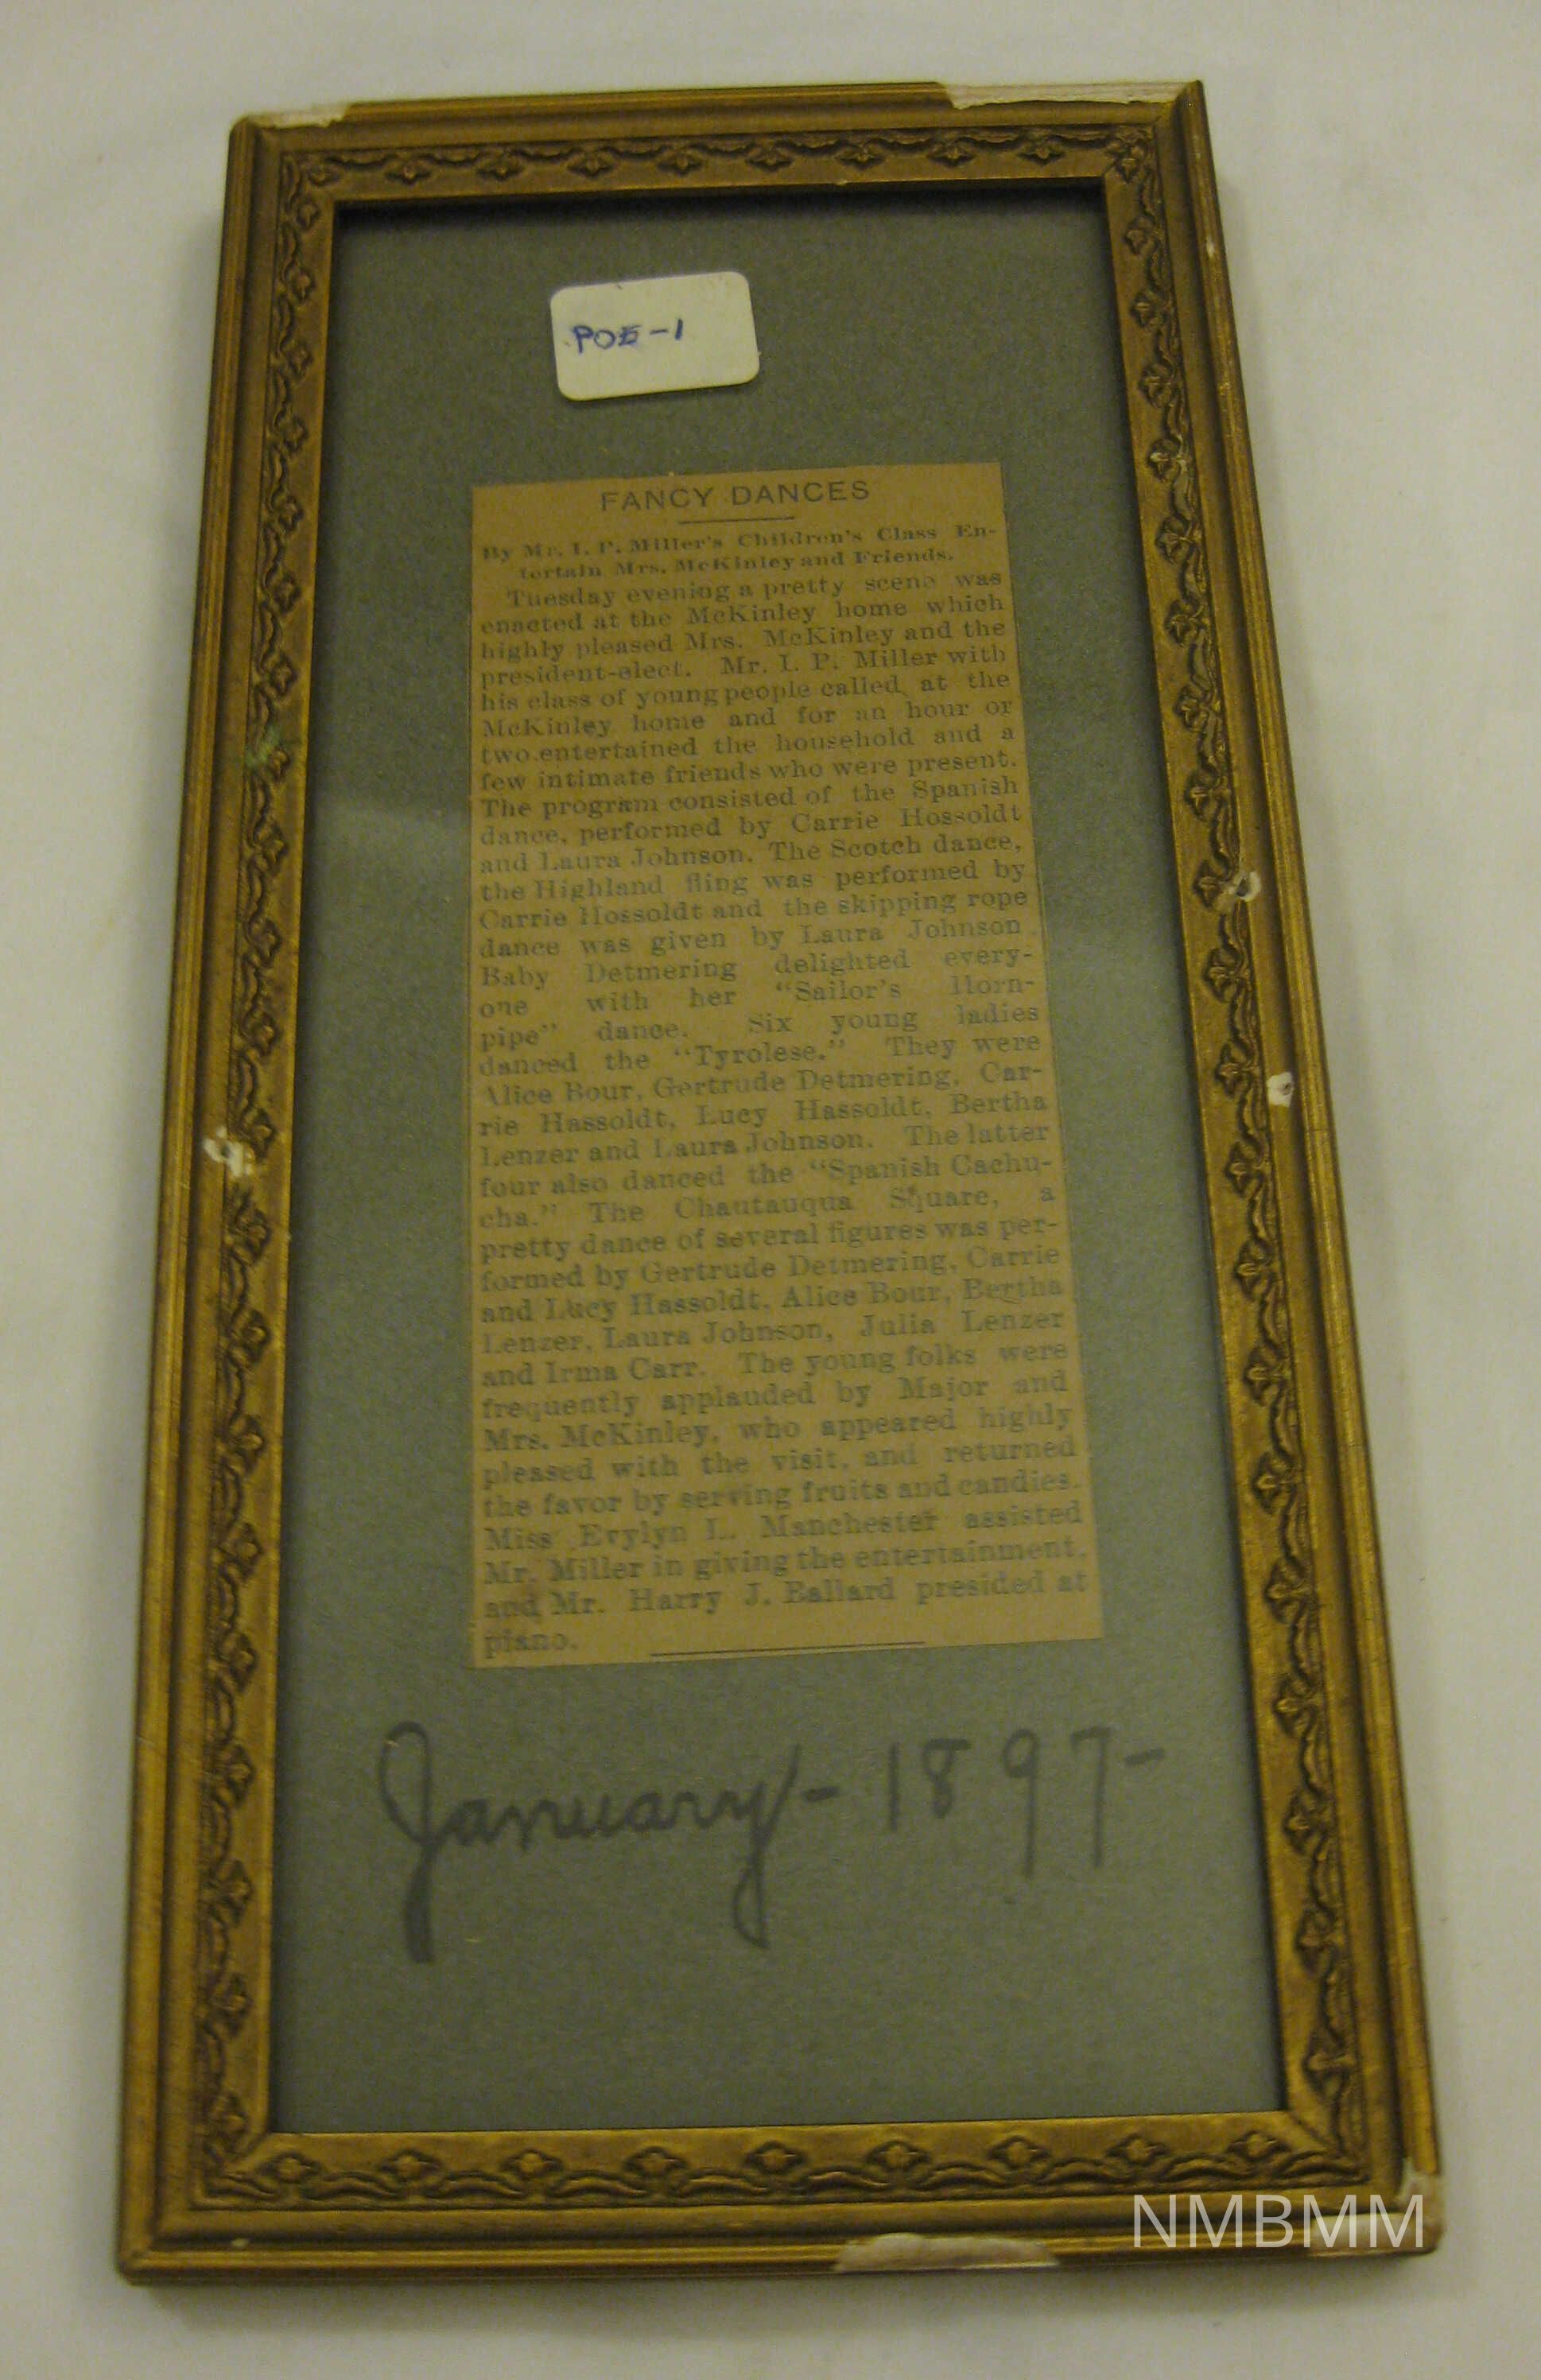 POE-1
FANCY DANCES
By Mr. I. P. Miller's Children's Class En-
tertain Mrs. McKinley and Friends.
Tuesday evening a pretty scene was
enacted at the McKinley home which
highly pleased Mrs. McKinley and the
president-elect. Mr. I. P. Miller with
his class of young people called at the
McKinley home and for an hour or
two entertained the household and a
few intimate friends who were present.
The program consisted of the Spanish
dance, performed by Carrie Hossoldt
and Laura Johnson. The Scotch dance,
the Highland fling was performed by
Carrie Hossoldt and the skipping rope
dance was given by Laura Johnson
Baby Detmering delighted every-
one with her "Sailor's Horn-
pipe" dance. Six young ladies
danced the "Tyrolese." They were
Alice Bour, Gertrude Detmering, Car-
rie Hassoldt, Lucy Hassoldt, Bertha
Lenzer and Laura Johnson. The latter
four also danced the "Spanish Cachu-
cha." The Chautauqua Square, a
pretty dance of several figures was per-
formed by Gertrude Detmering, Carrie
and Lucy Hassoldt, Alice Bour, Bertha
Lenzer, Laura Johnson, Julia Lenzer
and Irma Carr. The young folks were
frequently applauded by Major and
Mrs. McKinley, who appeared highly
pleased with the visit, and returned
the favor by serving fruits and candies.
Miss Evylyn L. Manchester assisted
Mr. Miller in giving the entertainment,
and Mr. Harry J. Ballard presided at
piano.
January - 1897-
NMBMM